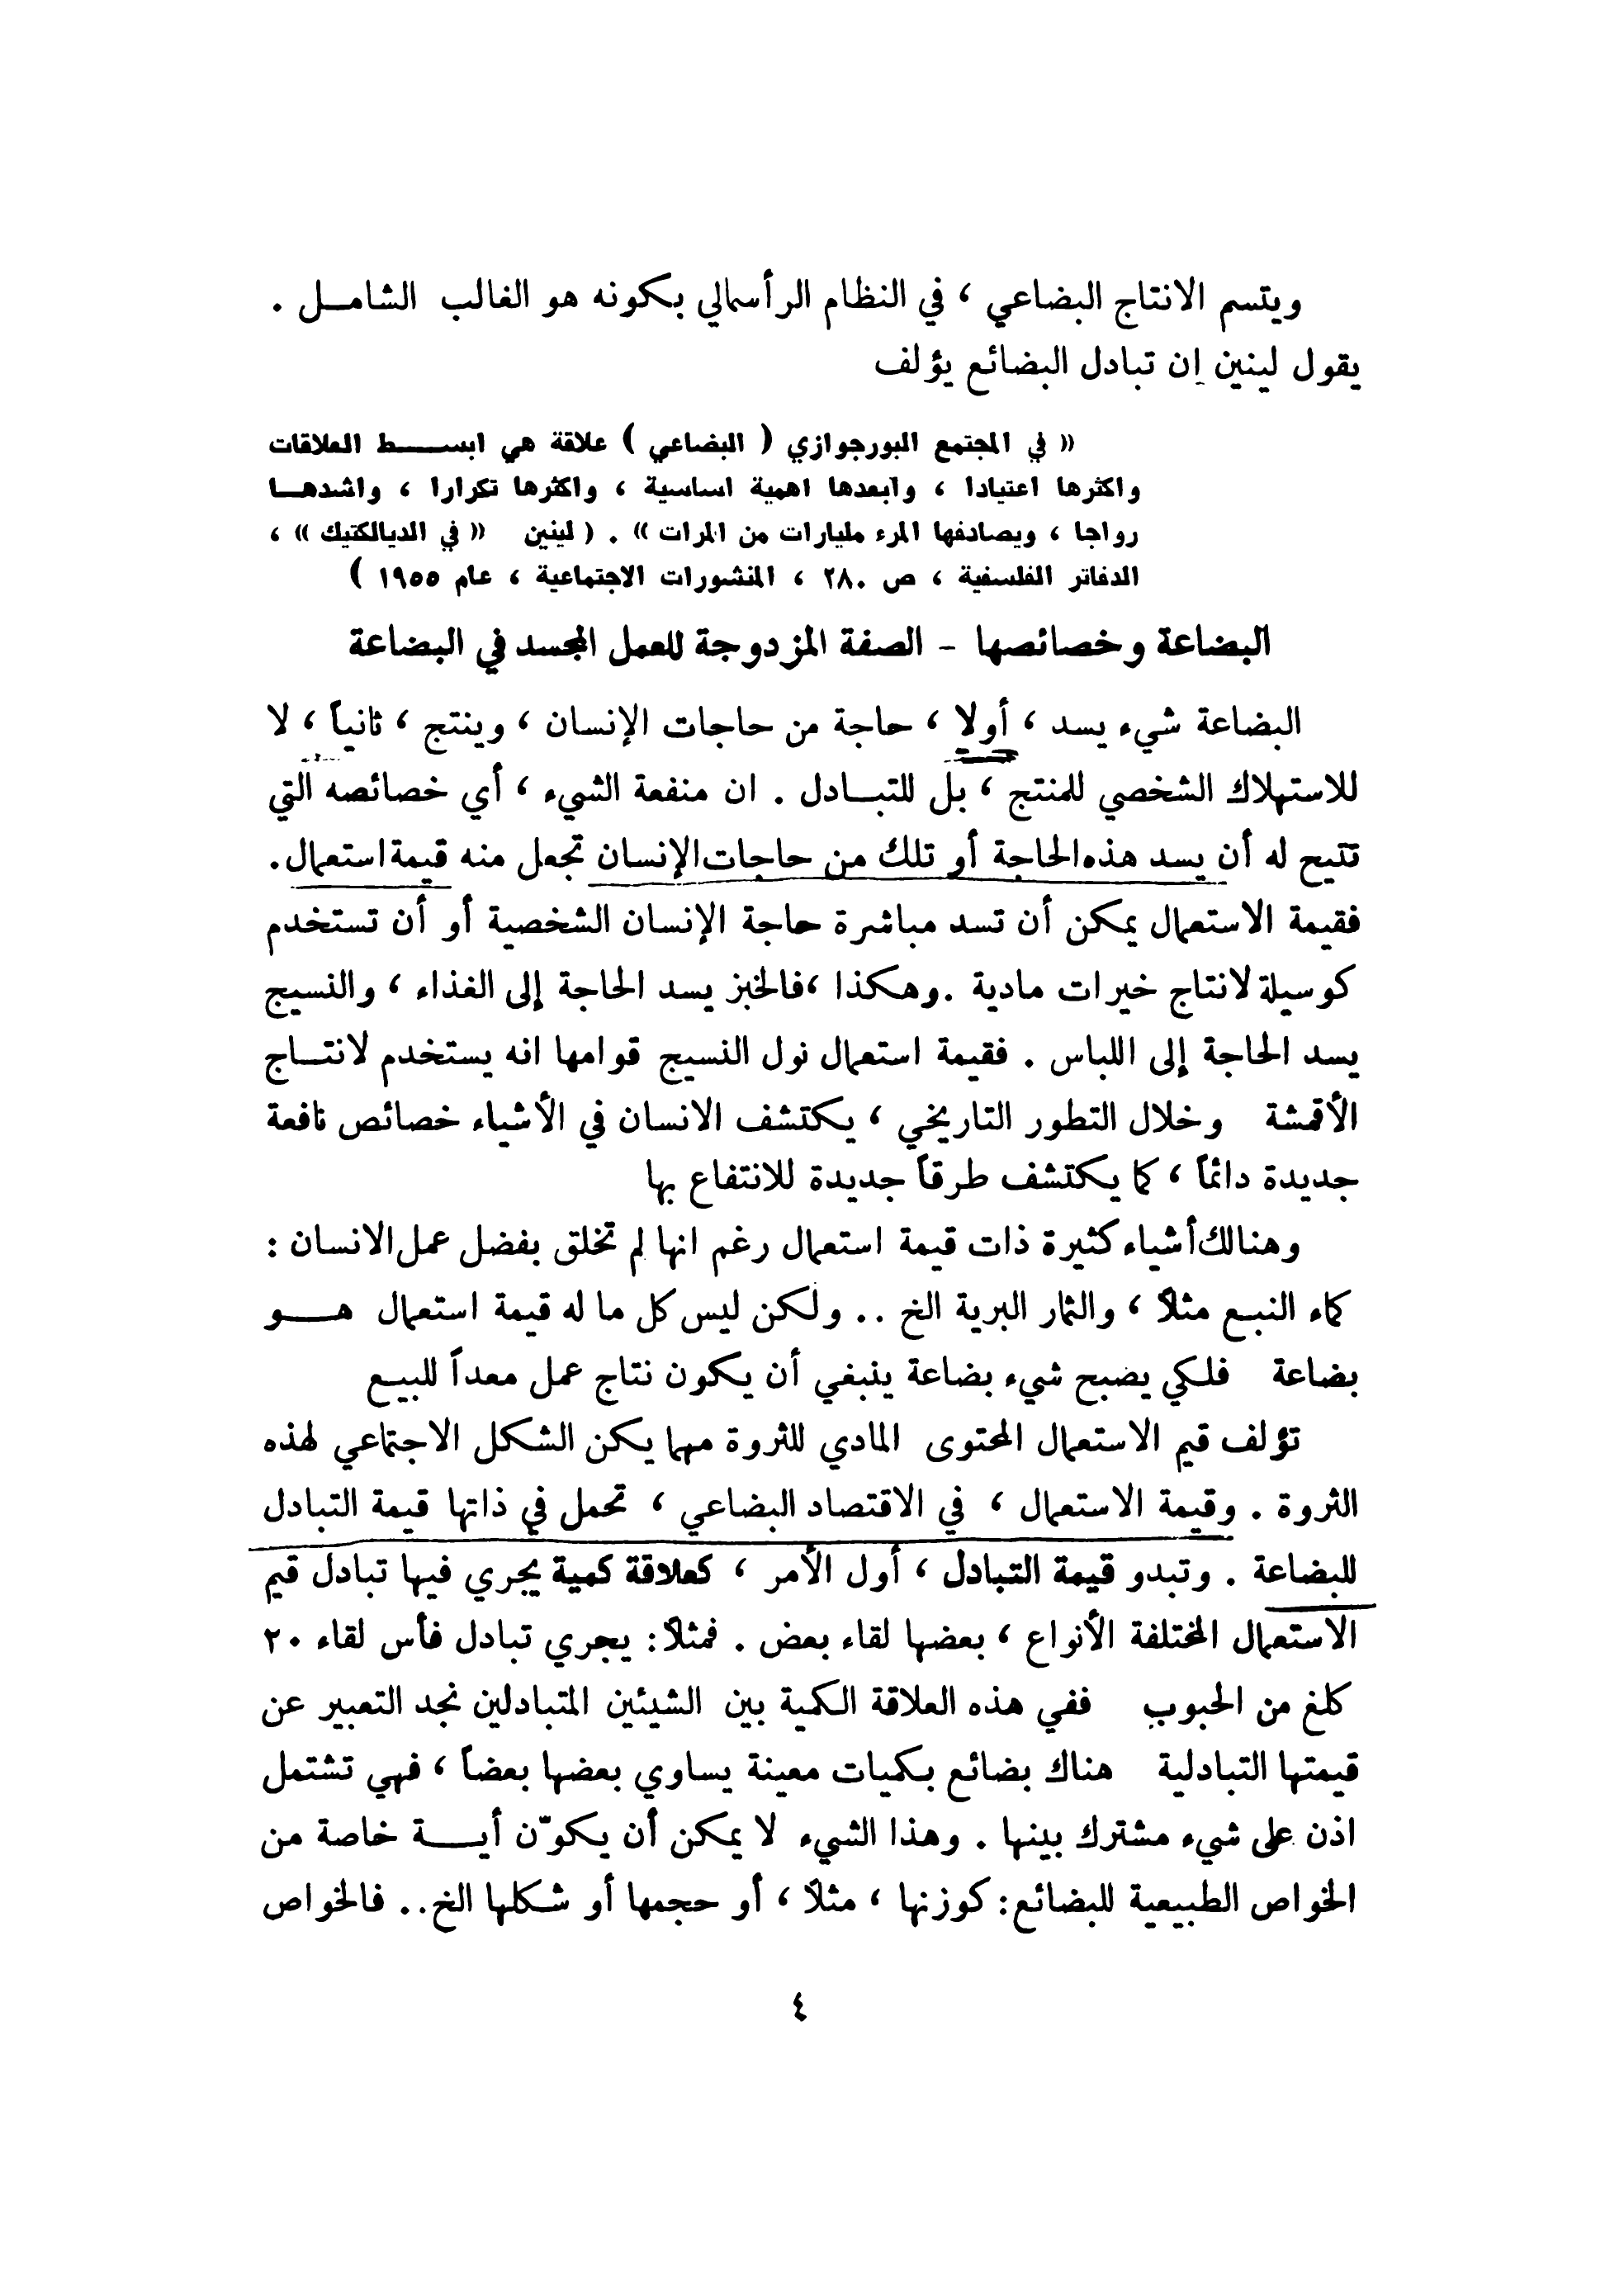 ويتسم الانتاج البضاعي ، في النظام الرأسمالي بكونه هو الغالب الشامـل .
يقول لينين إن تبادل البضائع يؤلف
« في المجتمع البورجوازي ( البضاعي ) علاقة هي ابســـط العلاقات
واكثرها اعتيادا ، وابعدها اهمية اساسية ، واكثرها تكرارا ، واشدهـا
رواجا ، ويصادفها المرء مليارات من المرات » . ( لينين « في الديالكتيك » ،
الدفاتر الفلسفية ، ص ٢٨٠ ، المنشورات الاجتماعية ، عام ١٩٥٥ )
البضاعة وخصائصها - الصفة المزدوجة للعمل المجسد في البضاعة
البضاعة شيء يسد ، أولا ، حاجة من حاجات الإنسان ، وينتج ، ثانياً ، لا
للاستهلاك الشخصي للمنتج ، بل للتبـادل . ان منفعة الشيء ، أي خصائصه التي
تتيح له أن يسد هذه الحاجة أو تلك من حاجات الإنسان تجعل منه قيمة استعمال .
فقيمة الاستعمال يمكن أن تسد مباشرة حاجة الإنسان الشخصية أو أن تستخدم
كوسيلة لانتاج خيرات مادية . وهكذا ، فالخبز يسد الحاجة إلى الغذاء ، والنسيج
يسد الحاجة إلى اللباس . فقيمة استعمال نول النسيج قوامها انه يستخدم لانتـاج
الأقمشة وخلال التطور التاريخي ، يكتشف الانسان في الأشياء خصائص نافعة
جديدة دائماً ، كما يكتشف طرقاً جديدة للانتفاع بها
وهنالك أشياء كثيرة ذات قيمة استعمال رغم انها لم تخلق بفضل عمل الانسان :
كماء النبع مثلاً ، والثمار البرية الخ .. ولكن ليس كل ما له قيمة استعمال هـــو
بضاعة فلكي يصبح شيء بضاعة ينبغي أن يكون نتاج عمل معداً للبيع
تؤلف قيم الاستعمال المحتوى المادي للثروة مهما يكن الشكل الاجتماعي لهذه
الثروة . وقيمة الاستعمال ، في الاقتصاد البضاعي ، تحمل في ذاتها قيمة التبادل
للبضاعة . وتبدو قيمة التبادل ، أول الأمر ، كعلاقة كمية يجري فيها تبادل قيم
الاستعمال المختلفة الأنواع ، بعضها لقاء بعض . فمثلاً : يجري تبادل فأس لقاء ٢٠
كلغ من الحبوب ففي هذه العلاقة الكمية بين الشيئين المتبادلين نجد التعبير عن
قيمتها التبادلية هناك بضائع بكميات معينة يساوي بعضها بعضاً ، فهي تشتمل
اذن على شيء مشترك بينها . وهذا الشيء لا يمكن أن يكوّن أيـــة خاصة من
الخواص الطبيعية للبضائع : كوزنها ، مثلاً ، أو حجمها أو شكلها الخ .. فالخواص
٤